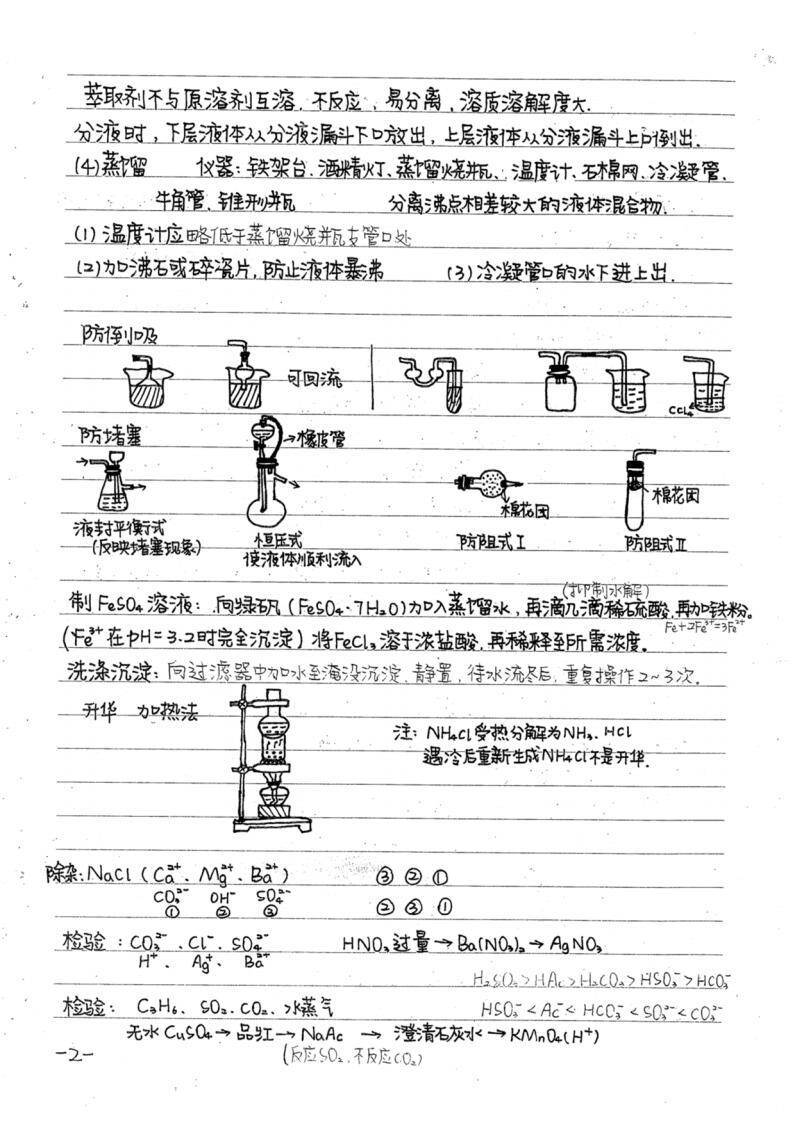 萃取剂不与原溶剂互溶、不反应、易分离,溶质溶解度大.
分液时,下层液体从分液漏斗下口放出,上层液体从分液漏斗上口倒出.
(4)蒸馏 仪器:铁架台、酒精灯、蒸馏烧瓶、温度计、石棉网、冷凝管、
牛角管、锥形瓶 分离沸点相差较大的液体混合物.
(1)温度计应略低于蒸馏烧瓶支管口处
(2)加沸石或碎瓷片,防止液体暴沸 (3)冷凝管口的水下进上出.
防倒吸
可回流
CCl4
防堵塞
橡皮管
棉花团
棉花团
液封平衡式
(反映堵塞现象)
恒压式
使液体顺利流入
防阻式Ⅰ
防阻式Ⅱ
(抑制水解)
制FeSO4溶液:向绿矾(FeSO4·7H2O)加入蒸馏水,再滴几滴稀硫酸,再加铁粉。
Fe+2Fe³⁺=3Fe²⁺
(Fe³⁺在pH=3.2时完全沉淀)将FeCl3溶于浓盐酸,再稀释至所需浓度。
洗涤沉淀:向过滤器中加水至淹没沉淀、静置,待水流尽后,重复操作2~3次.
升华 加热法
注:NH4Cl受热分解为NH3、HCl
遇冷后重新生成NH4Cl不是升华.
除杂:NaCl(Ca²⁺、Mg²⁺、Ba²⁺) ③②①
CO3²⁻ OH⁻ SO4²⁻
① ② ③ ②③①
检验:CO3²⁻、Cl⁻、SO4²⁻ HNO3过量→Ba(NO3)2→AgNO3
H⁺、Ag⁺、Ba²⁺
H2SO3>HAc>H2CO3>HSO3⁻>HCO3⁻
检验:C3H6、SO2、CO2、水蒸气 HSO3⁻<Ac⁻<HCO3⁻<SO3²⁻<CO3²⁻
无水CuSO4→品红→NaAc→澄清石灰水→KMnO4(H⁺)
(反应SO2、不反应CO2)
-2-